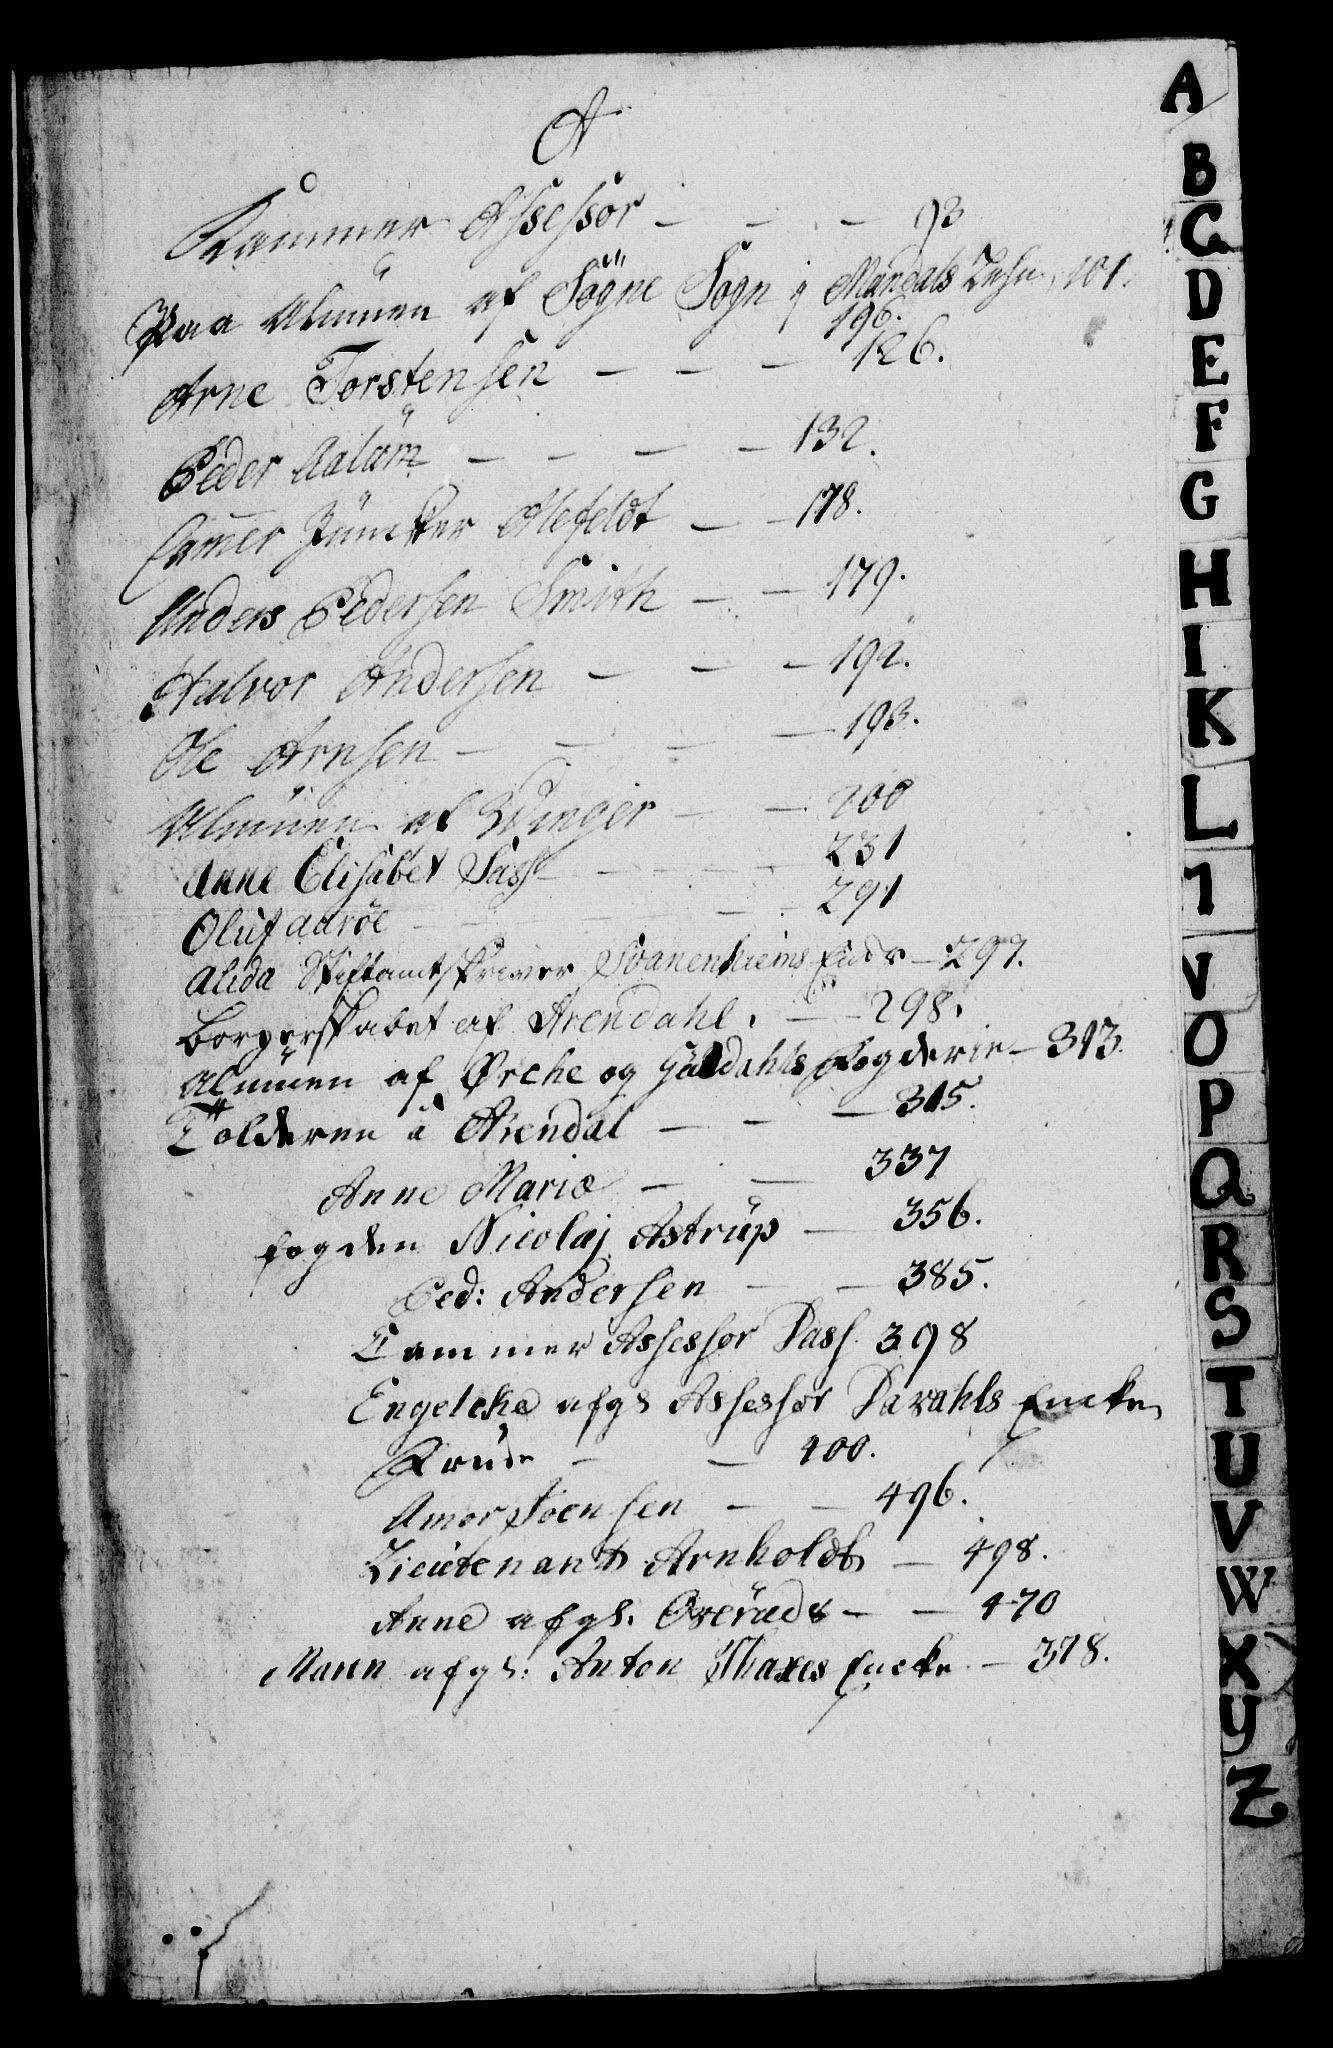 A
Kammer Assessor — — — 93
Paa Almuen af Sögne Sogn i Mandals Lehn, 101.
196.
Arne Torstensen — — — 126.
Peder Aalum — — — — 132.
Camer Juncker Alefeldt — — 178.
Anders Pedersen Smith — — 179.
Halvor Andersen — — — 192.
Ole Arnsen — — — — 193.
Almuen af Winger — — 200
Anne Elisabet Sass — — — 231
Oluf Aaröe — — — 291
Alida Stiftamtskriver Svanenhielms — 297.
Borgerskabet af Arendahl. — — 298.
Almuen af Ørche og Guldahls Fogderie — 313.
Tolderen i Arendal — — — 315.
Anne Marie — — 337
fogden Nicolaj Astrup — 356.
Ped: Andersen — — 385.
Cammer Assessor Dass. 398
Engelche afgl Assessor Encke
— — 400.
Amor Joensen — — 496.
Lieutenant Arnholdt — 498.
Anne afgl. — — 470
Maren afgl: Anton Thaxes Encke — 378.
A
B
C
D
E
F
G
H
I
K
L
O
P
Q
R
S
T
U
V
W
X
Y
Z